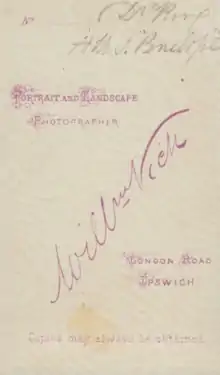 No
Dr Ross
H.M.S.
PORTRAIT AND LANDSCAPE
PHOTOGRAPHER
Willm Vick
LONDON ROAD
IPSWICH
Copies may always be obtained